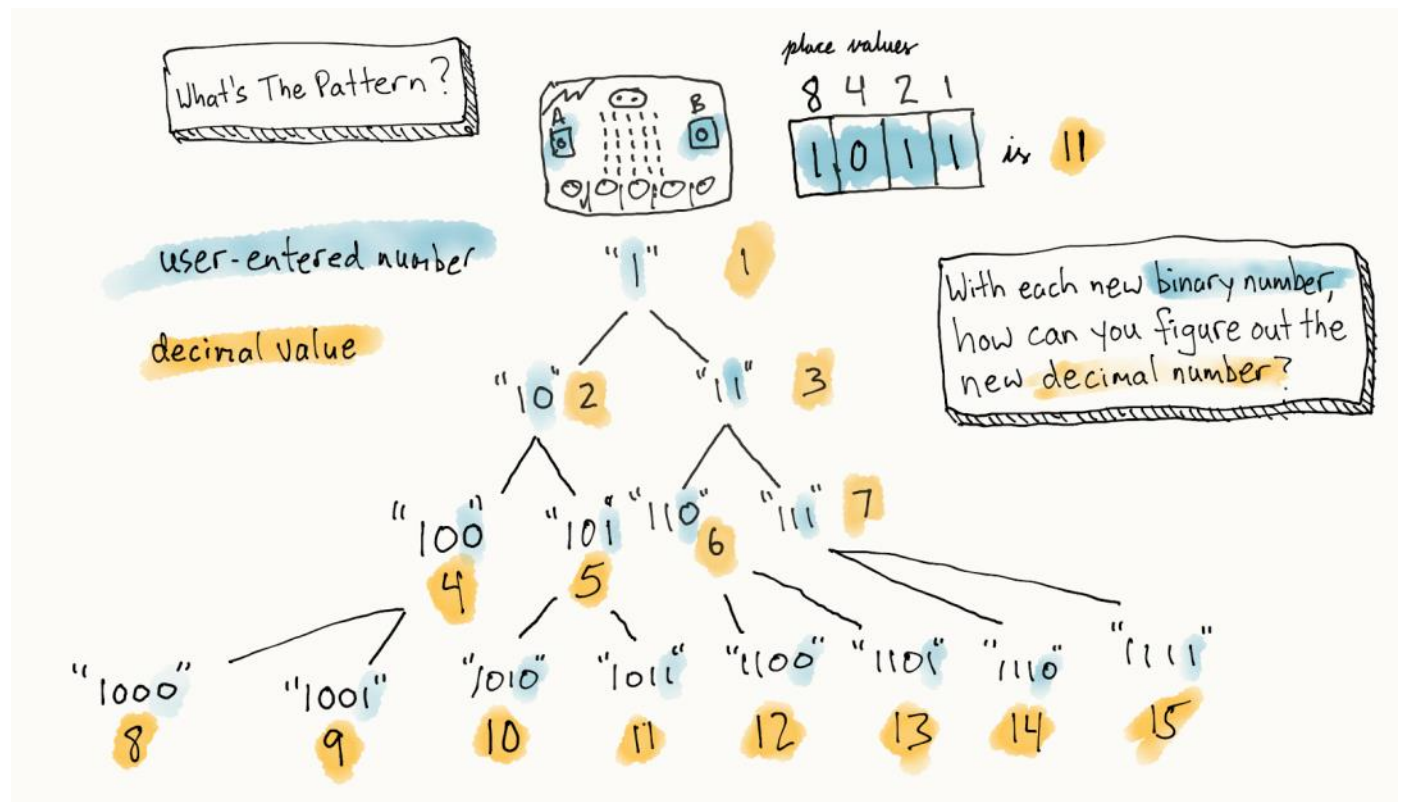 What's The Pattern?
place values
8 4 2 1
A B
1 0 1 1 is 11
user-entered number
"1" 1
decimal value
With each new binary number,
how can you figure out the
new decimal number?
"10" 2 "11" 3
"100" "101" "110" "111" 7
4 5 6
"1000" "1001" "1010" "1011" "1100" "1101" "1110" "1111"
8 9 10 11 12 13 14 15